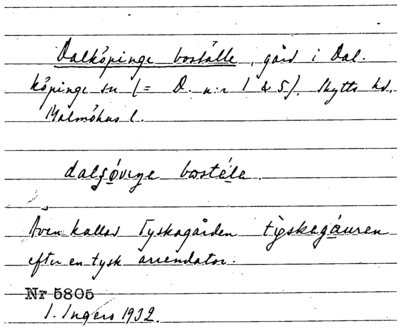 Dalköpinge boställe, gård i Dal-
köpinge sn (= D. n:r 1 & 5), Skytts hd,
Malmöhus l.
bostéla.
Även kallad Tyskagården
efter en tysk arrendator.
Nr 5805
I. Ingers 1932.